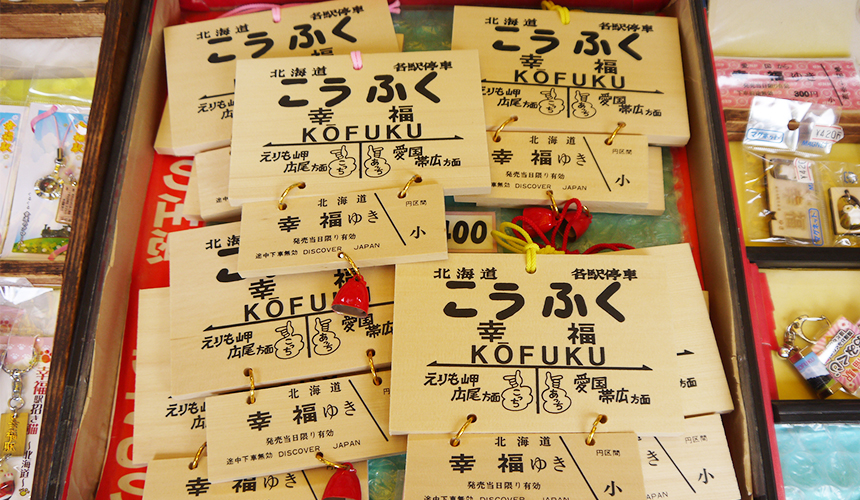 北海道 各駅停車
こうふく
幸
北海道 各駅停車
こうふく
幸福
KŌFUKU
えりも岬 愛国
広尾方面 こっち あっち 帯広方面
北海道 円区間
幸福ゆき
発売当日限り有効 小
途中下車無効 DISCOVER JAPAN
北海道 各駅停車
こうふく
幸福
KŌFUKU
えりも岬 愛国
広尾方面 こっち あっち 帯広方面
北海道 円区間
幸福ゆき
発売当日限り有効 小
途中下車無効 DISCOVER JAPAN
400
北海道
幸
KŌFUKU
えりも岬 愛国
広尾方面 こっち あっち 帯広
北海道
幸福ゆき
発売当日限り有効
途中下車無効 DISCOVER JAPAN
北海道 各駅停車
こうふく
幸福
KŌFUKU
えりも岬 愛国
広尾方面 こっち あっち 帯広方面
北海道 円区間
幸福ゆき
発売当日限り有効 小
途中下車無効 DISCOVER JAPAN
小
幸福ゆき
300円
¥420
¥420